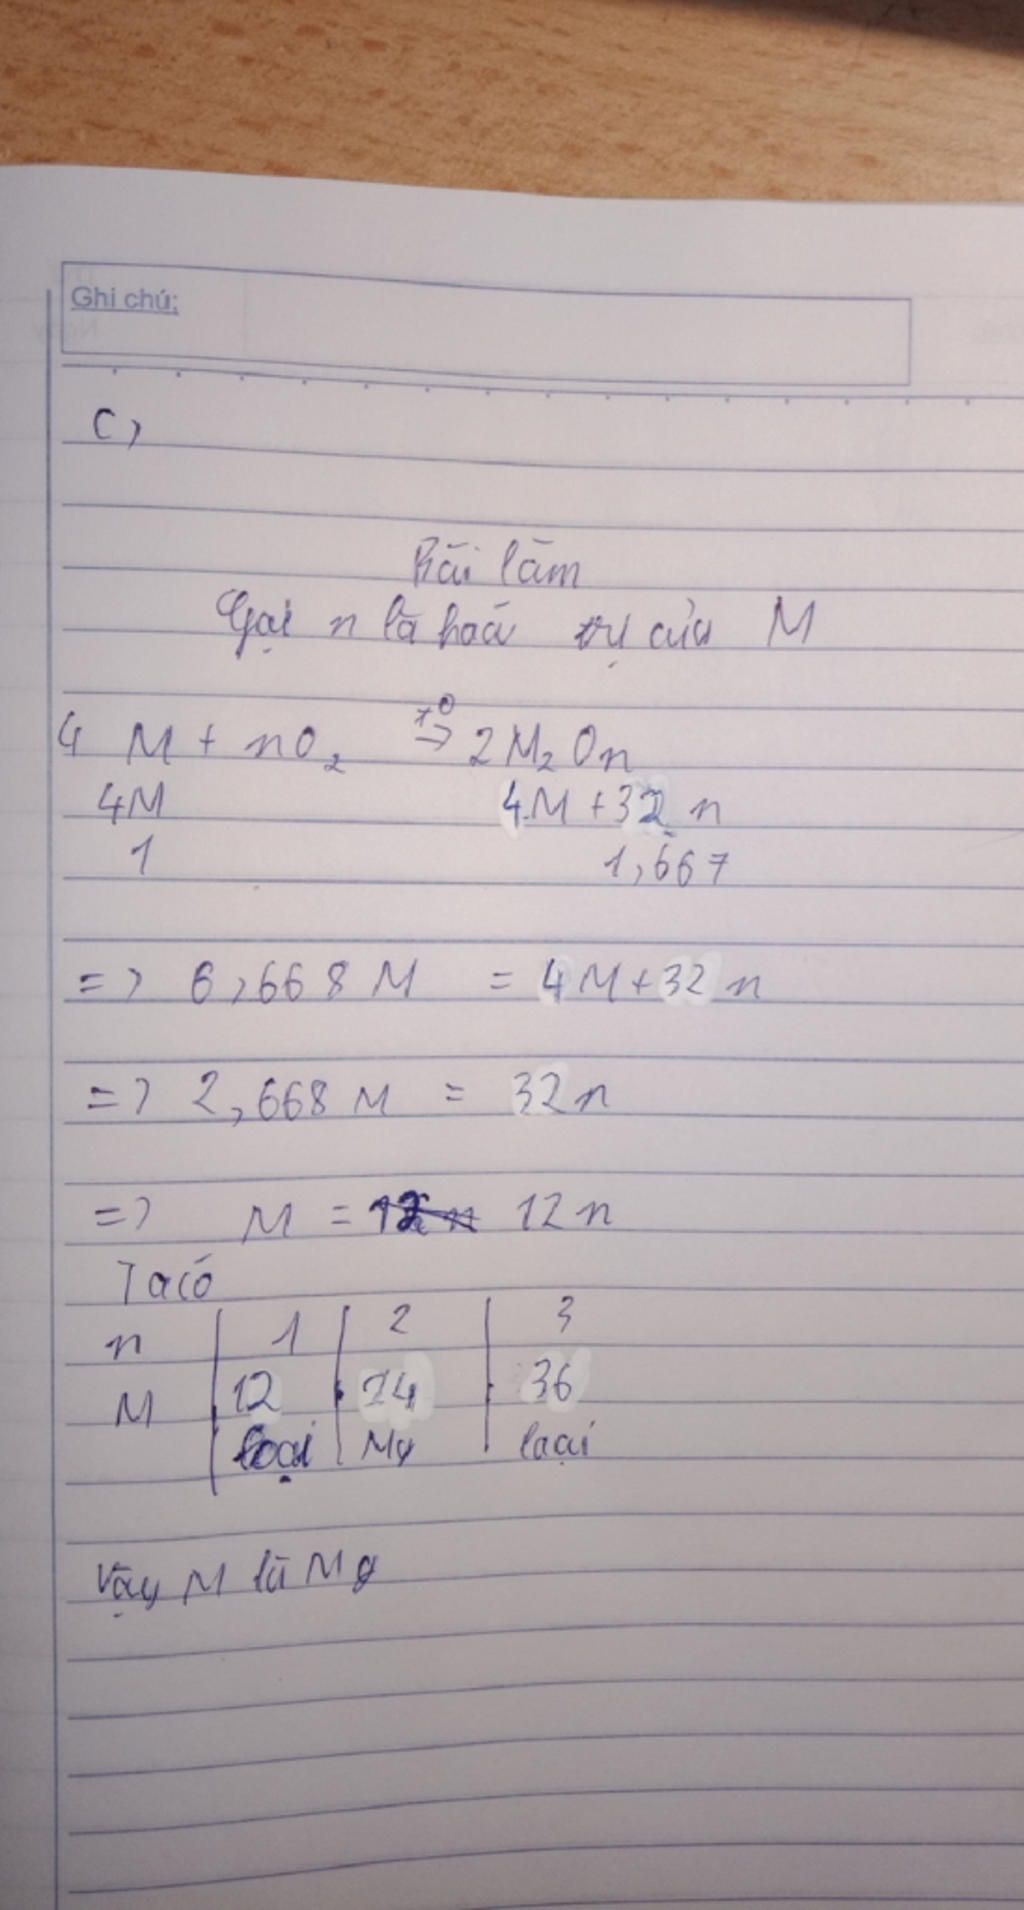 Ghi chú:
c,
Bài làm
Gọi n là hoá trị của M
4 M + nO2 t0→ 2 M2On
4M 4M + 32 n
1 1,667
=> 6,668 M = 4M + 32 n
=> 2,668 M = 32n
=> M = 12n
Ta có
n 1 2 3
M 12 24 36
loại Mg loại
Vậy M là Mg